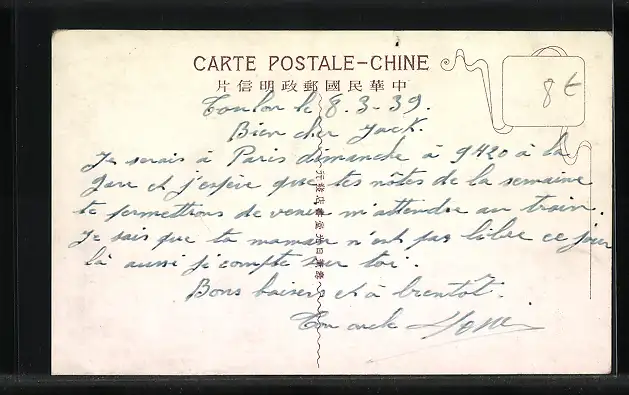 CARTE POSTALE-CHINE
片信明政郵國民華中
8 €
Toulon le 8.3-39.
Bien cher Jack.
Je serais à Paris dimanche à 9h20 à la
gare et j'espère que tes nôtes de la semaine
te permettrons de venir m'attendre au train.
Je sais que ta maman n'est pas libre ce jour
là aussi je compte sur toi.
Bons baisers et à bientôt.
Ton oncle